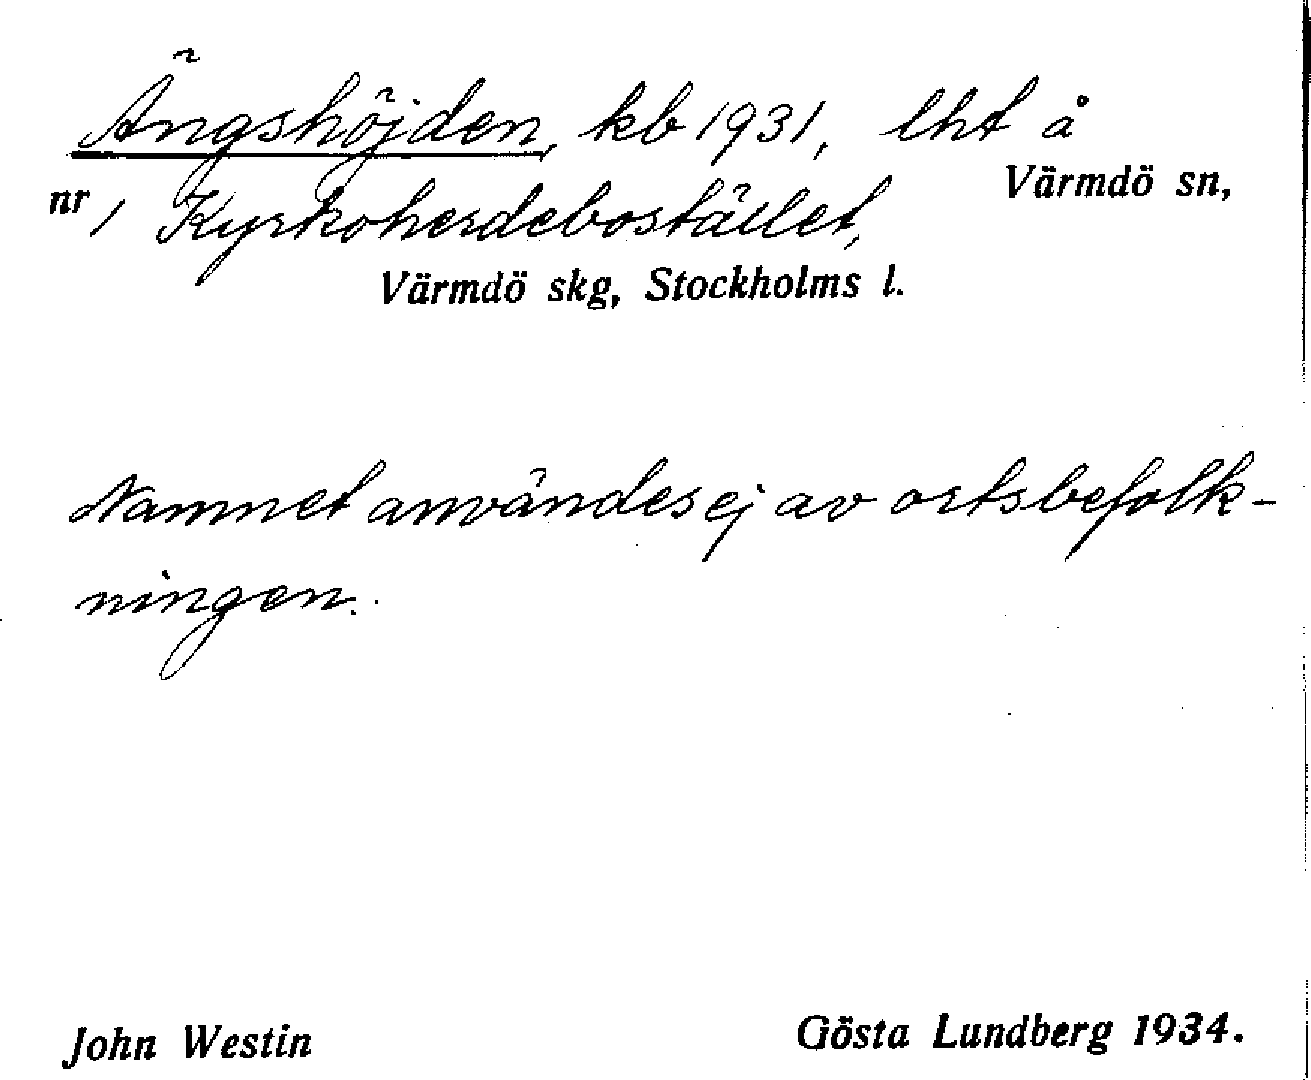 Ängshöjden, kb 1931, lht å
Värmdö sn,
nr 1 Kyrkoherdebostället,
Värmdö skg, Stockholms l.
Namnet användes ej av ortsbefolk-
ningen.
John Westin
Gösta Lundberg 1934.